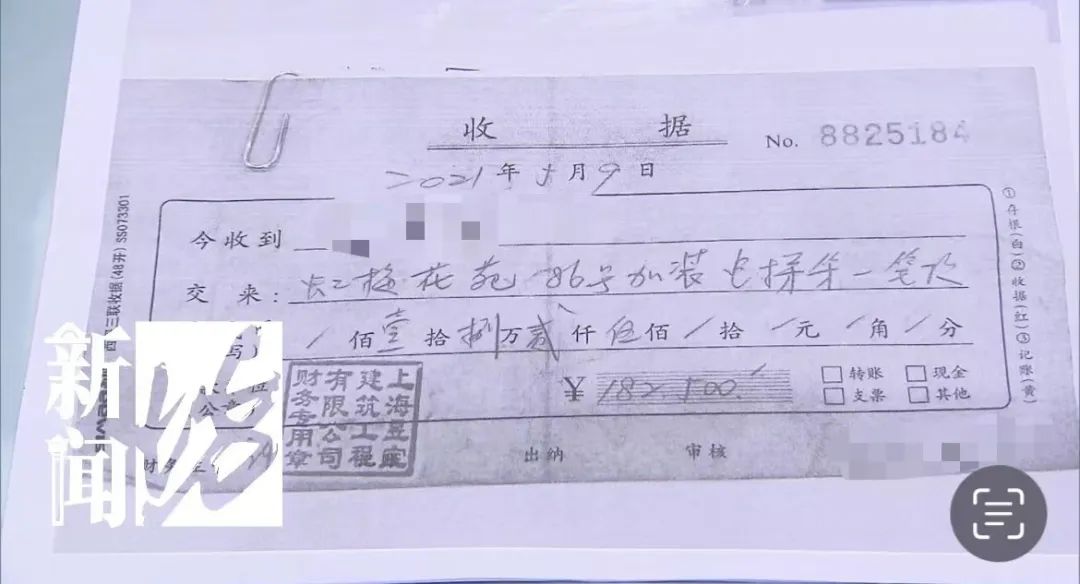 收 据
No. 8825184
2021年5月9日
今收到
交 来: 长江梅花苑 86号加装电梯第一笔款
/佰壹拾捌万贰仟伍佰/拾/元/角/分
¥ 182500.
转账 现金
支票 其他
财务 出纳 审核
上海昱
建筑工程
有限公司
财务专用章
三联收据(48开) SS073301
①存根(白)②收据(红)③记账(黄)
新闻